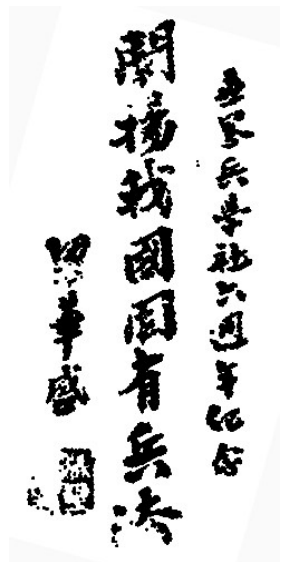 世界兵學社六週年紀念
闡揚我國固有兵法
華盛